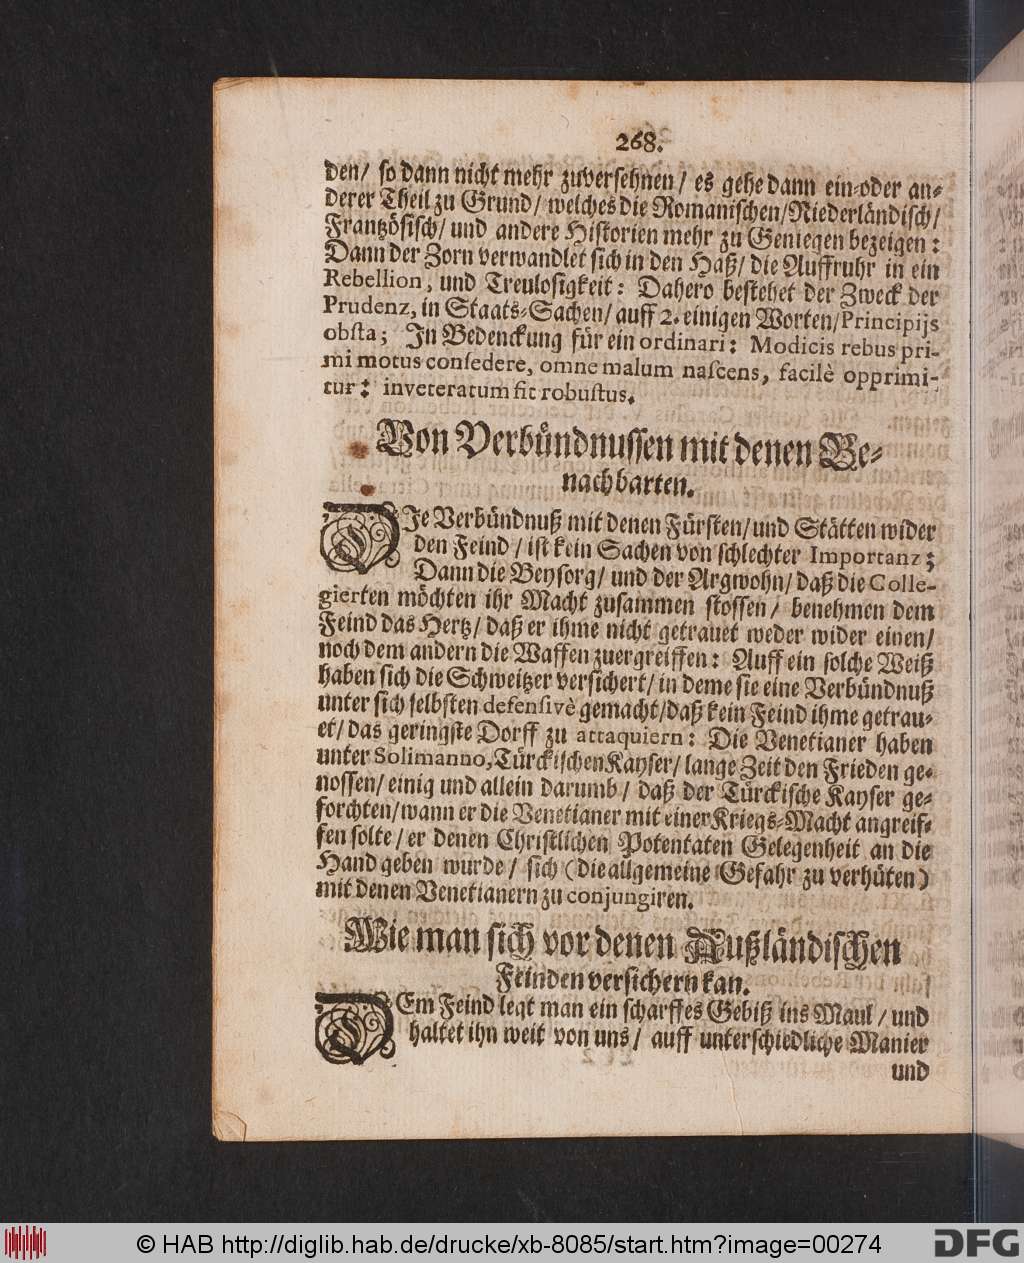 268.
den/ so dann nicht mehr zuversehnen/ es gehe dann ein-oder an-
derer Theil zu Grund/ welches die Romanischen/Niederländisch/
Frantzösisch/ und andere Historien mehr zu Geniegen bezeigen:
Dann der Zorn verwandlet sich in den Haß/ die Auffruhr in ein
Rebellion, und Treulosigkeit: Dahero bestehet der Zweck der
Prudenz, in Staats-Sachen/ auff 2. einigen Worten/Principijs
obsta; In Bedenckung für ein ordinari: Modicis rebus pri-
mi motus consedere, omne malum nascens, facilè opprimi-
tur: inveteratum fit robustus.
Von Verbündnussen mit denen Be-
nachbarten.
DIe Verbündnuß mit denen Fürsten/und Stätten wider
den Feind/ ist kein Sachen von schlechter Importanz;
Dann die Beysorg/ und der Argwohn/ daß die Colle-
gierten möchten ihr Macht zusammen stossen/ benehmen dem
Feind das Hertz/ daß er ihme nicht getrauet weder wider einen/
noch dem andern die Waffen zuergreiffen: Auff ein solche Weiß
haben sich die Schweitzer versichert/ in deme sie eine Verbündnuß
unter sich selbsten defensivè gemacht/daß kein Feind ihme getrau-
et/ das geringste Dorff zu attaquiern: Die Venetianer haben
unter Solimanno, Türckischen Kayser/ lange Zeit den Frieden ge-
nossen/ einig und allein darumb/ daß der Türckische Kayser ge-
forchten/wann er die Venetianer mit einer Kriegs-Macht angreif-
fen solte/ er denen Christlichen Potentaten Gelegenheit an die
Hand geben wurde/ sich (die allgemeine Gefahr zu verhüten)
mit denen Venetianern zu conjungiren.
Wie man sich vor denen Außländischen
Feinden versichern kan.
DEm Feind legt man ein scharffes Gebiß ins Maul/ und
haltet ihn weit von uns/ auff unterschiedliche Manier
und
© HAB http://diglib.hab.de/drucke/xb-8085/start.htm?image=00274
DFG